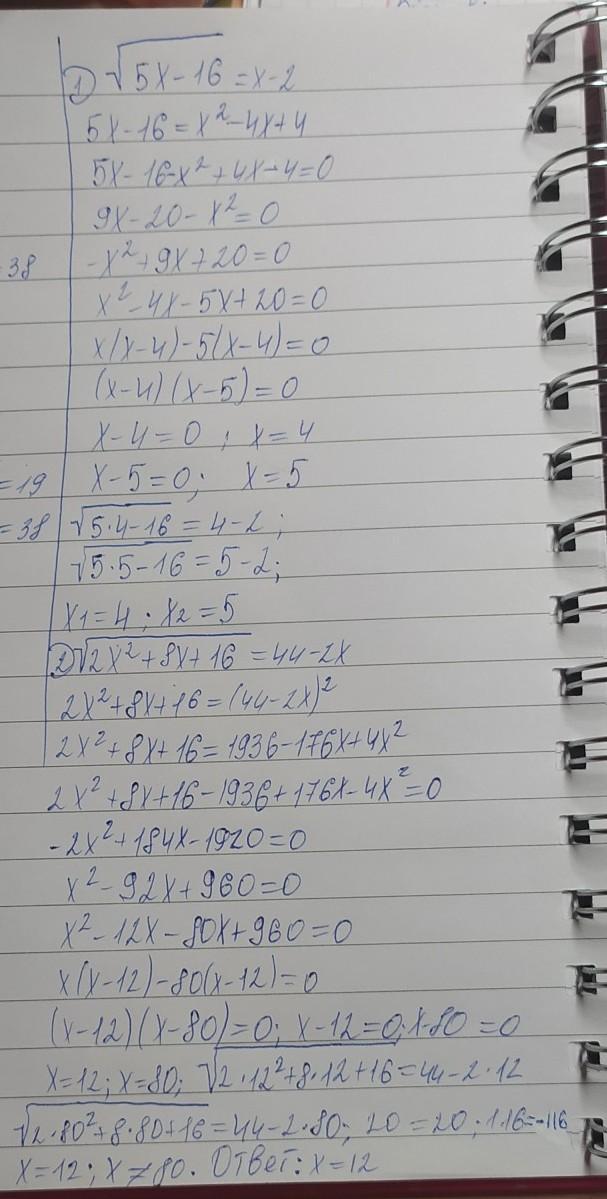 1) √5x-16 = x-2
5x-16 = x²-4x+4
5x-16-x²+4x-4=0
9x-20-x²=0
38 -x²+9x+20=0
x²-4x-5x+20=0
x(x-4)-5(x-4)=0
(x-4)(x-5)=0
x-4=0; x=4
=19 x-5=0; x=5
=38 √5·4-16 = 4-2;
√5·5-16 = 5-2;
x1=4; x2=5
2) √2x²+8x+16 = 44-2x
2x²+8x+16=(44-2x)²
2x²+8x+16=1936-176x+4x²
2x²+8x+16-1936+176x-4x²=0
-2x²+184x-1920=0
x²-92x+960=0
x²-12x-80x+960=0
x(x-12)-80(x-12)=0
(x-12)(x-80)=0; x-12=0; x-80=0
x=12; x=80; √2·12²+8·12+16=44-2·12
√2·80²+8·80+16=44-2·80; 20=20; 116=-116
x=12; x≠80. Ответ: x=12